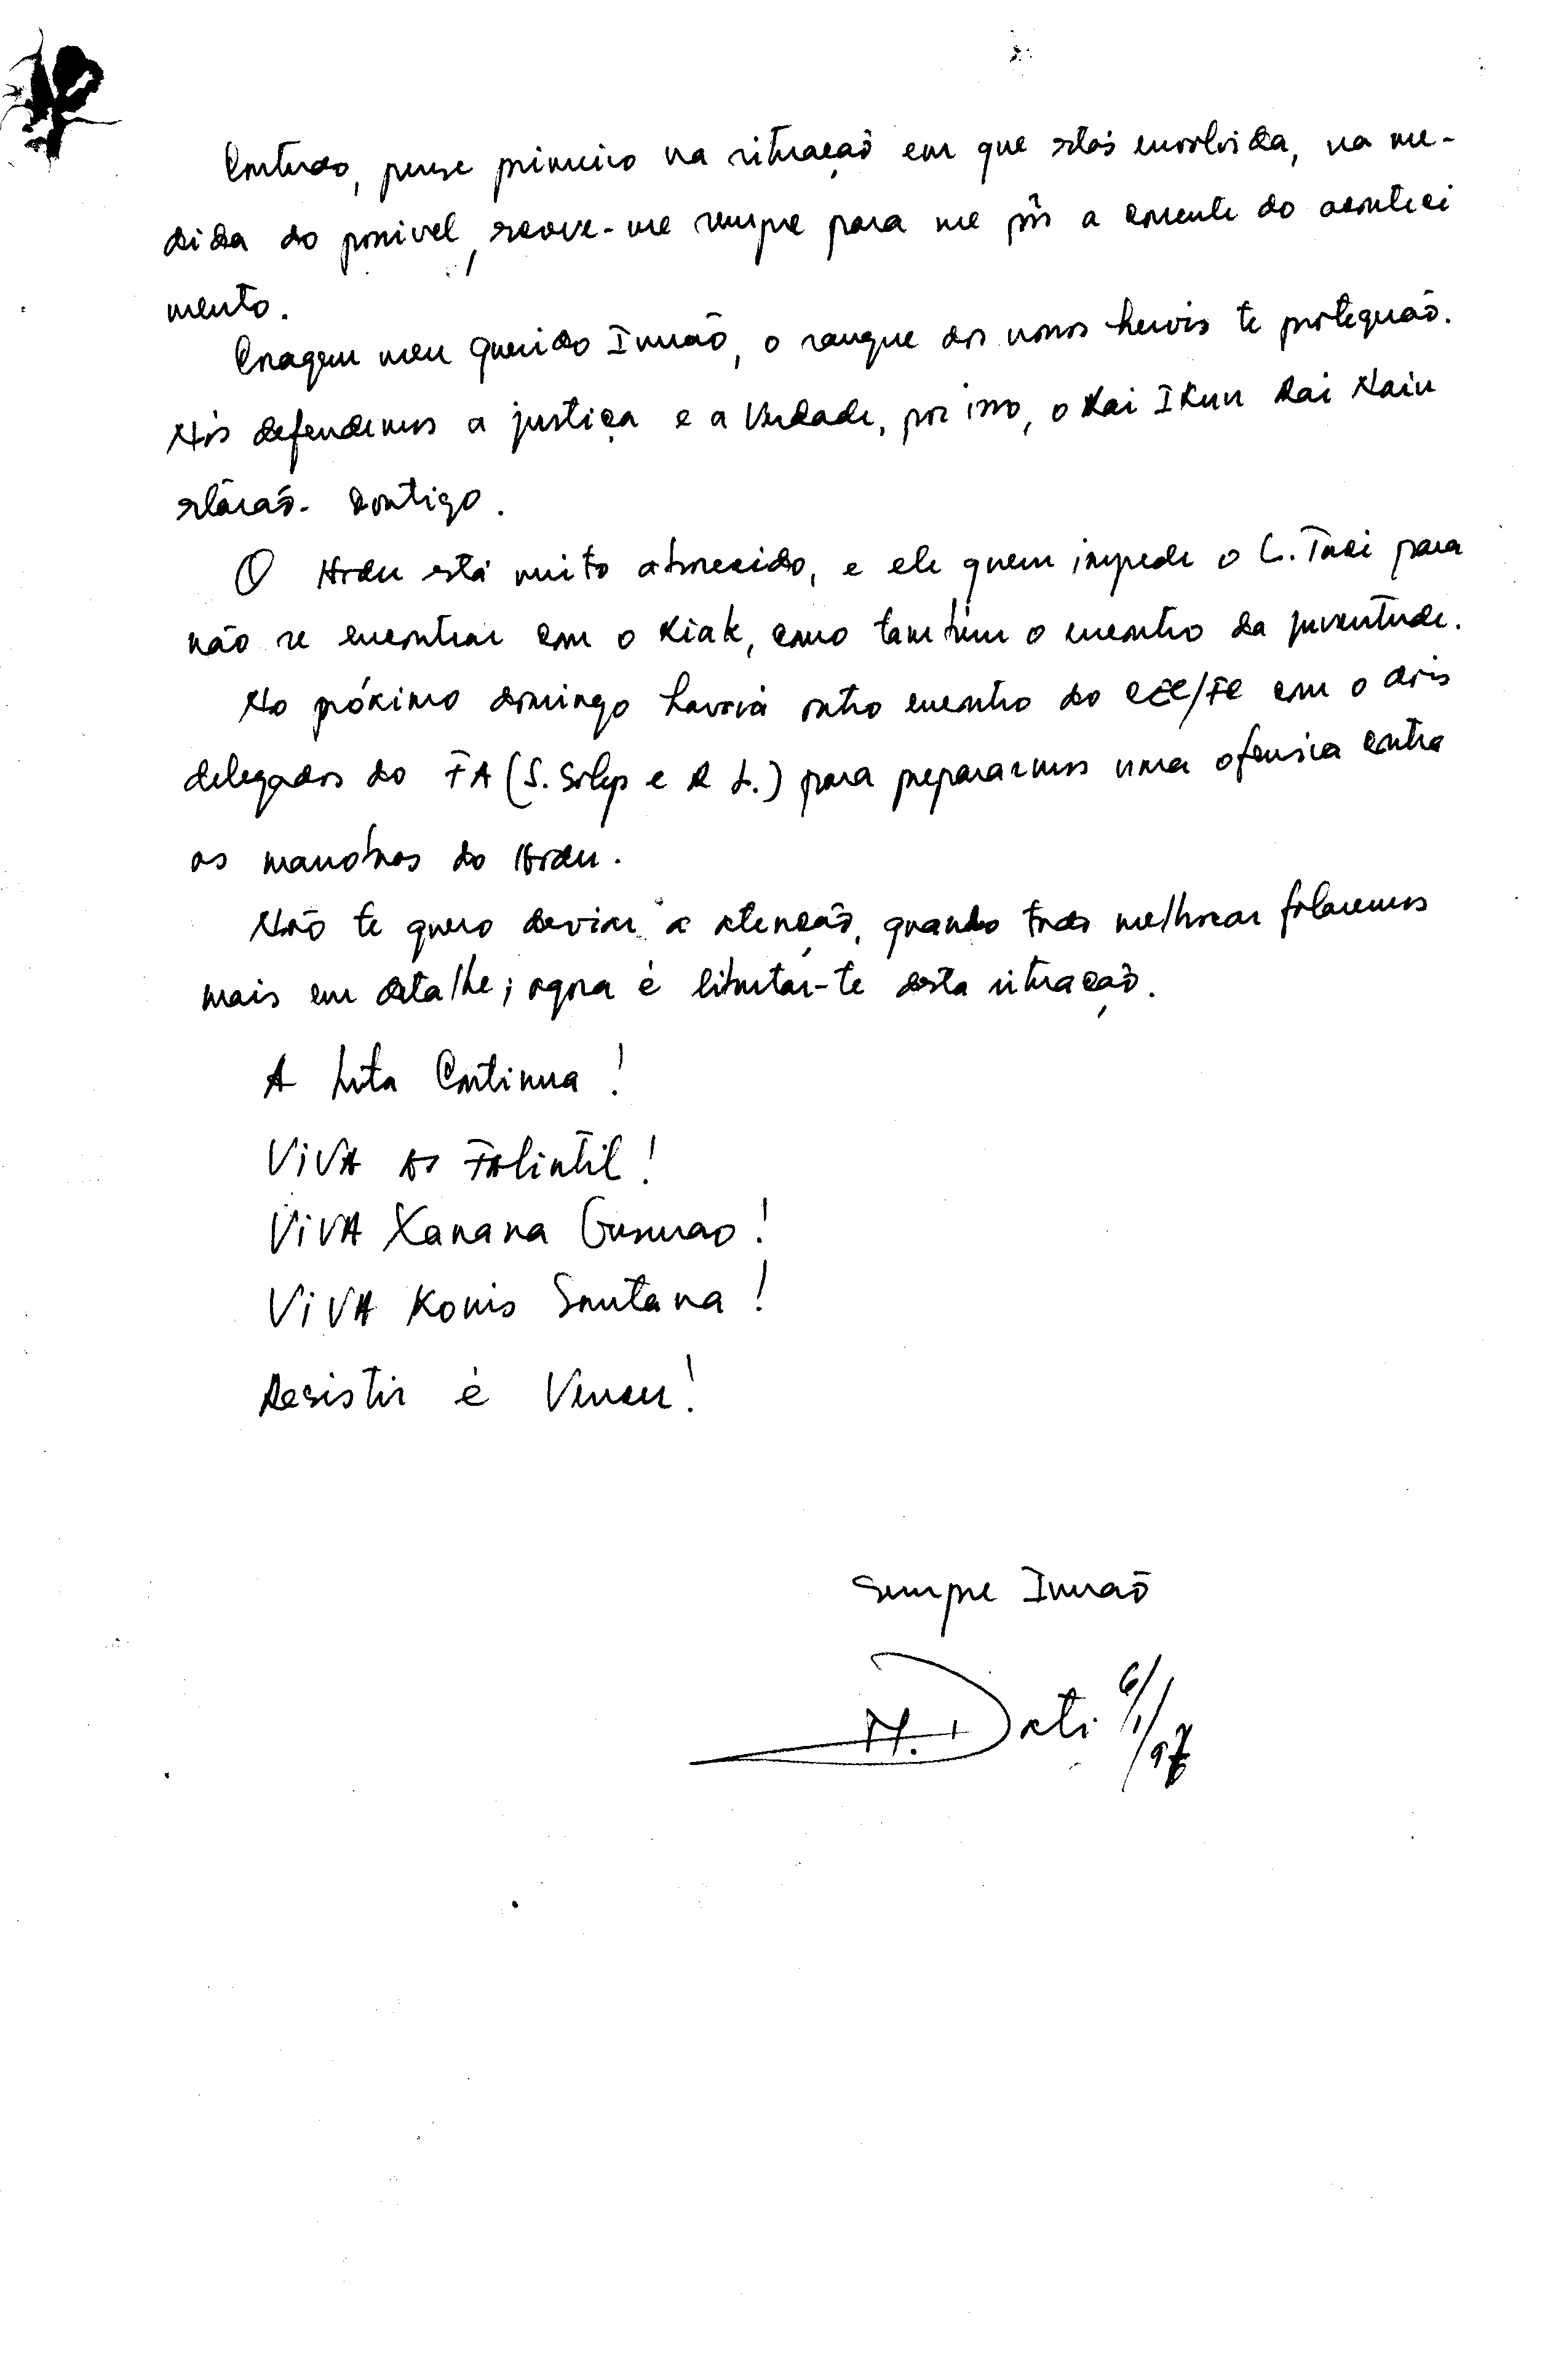 Contudo, pense primeiro na situação em que estás envolvida, na me-
dida do possivel, escove-me sempre para me pôs a corrente do aconteci
mento.
Coragem meu querido Irmão, o sangue dos nossos herois te protegerão.
Nós defendemos a justiça e a Verdade, por isso, o Rai Ikun Rai Nain
estárão- contigo.
O Hodu está muito aborrecido, e ele quem impede o L. Taci para
não se encontrar com o Kiak, como também o encontro da juventude.
No próximo domingo haverá outro encontro do CE/FC com o dois
delegados do FA (S. e R L.) para prepararmos uma ofensiva contra
as manobras do Hodu.
Não te quero deviar a atenção, quando tudo melhorar falaremos
mais em detalhe; agora é libertar-te desta situação.
A Luta Continua!
VIVA AS Falintil!
VIVA Xanana Gusmao!
VIVA Konis Santana!
Resistir é Vencer!
Sempre Irmão
M. Dati 6/1/97